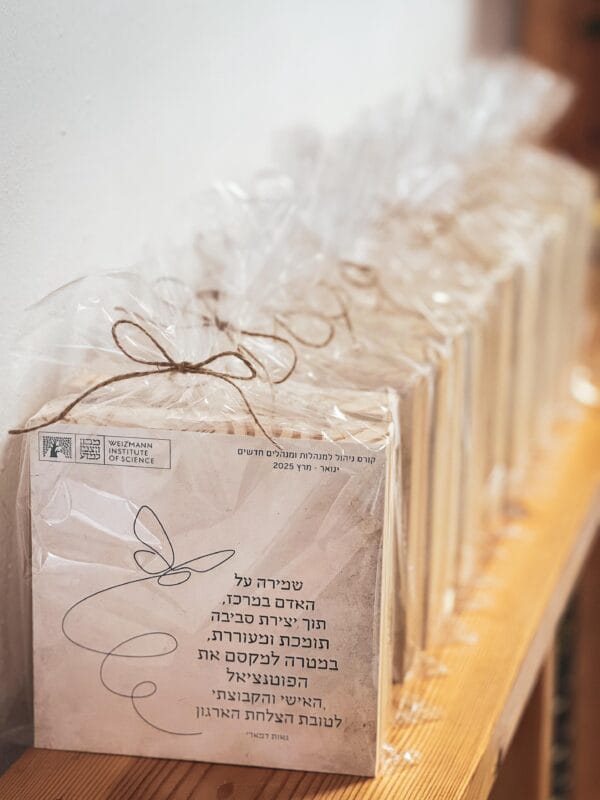 מכון ויצמן למדע
WEIZMANN
INSTITUTE
OF SCIENCE
קורס ניהול למנהלות ומנהלים חדשים
ינואר - מרץ 2025
שמירה על
האדם במרכז,
תוך יצירת סביבה
תומכת ומעוררת,
במטרה למקסם את
הפוטנציאל
האישי והקבוצתי,
לטובת הצלחת הארגון